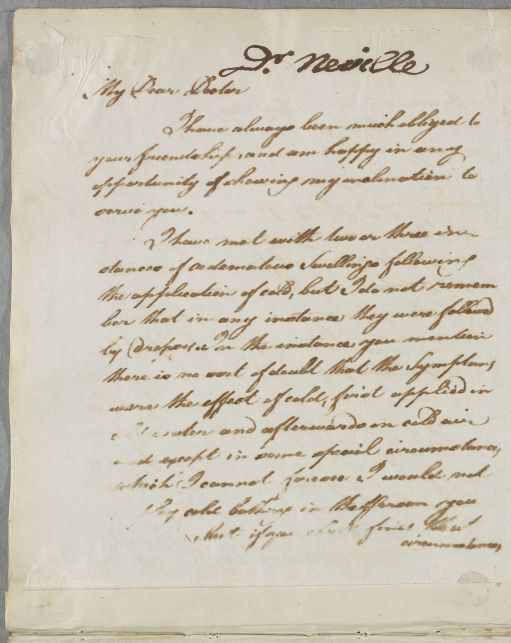 Dr Neville
My Dear Doctor
I have always been much obliged to
your friendship, and am happy in any
opportunity of shewing my inclination to
serve you.
I have met with two or three in
stances of œdematous Swellings following
the application of cold, but I do not remem
ber that in any instance they were followed
by Dropsies In the instance you mention
there is no sort of doubt that the Symptoms
were the effect of cold, first applied in
water and afterwards in cold air
and except in some special circumstances,
which I cannot foresee I would not
cold bathing in the you
But if you find that
circumstances